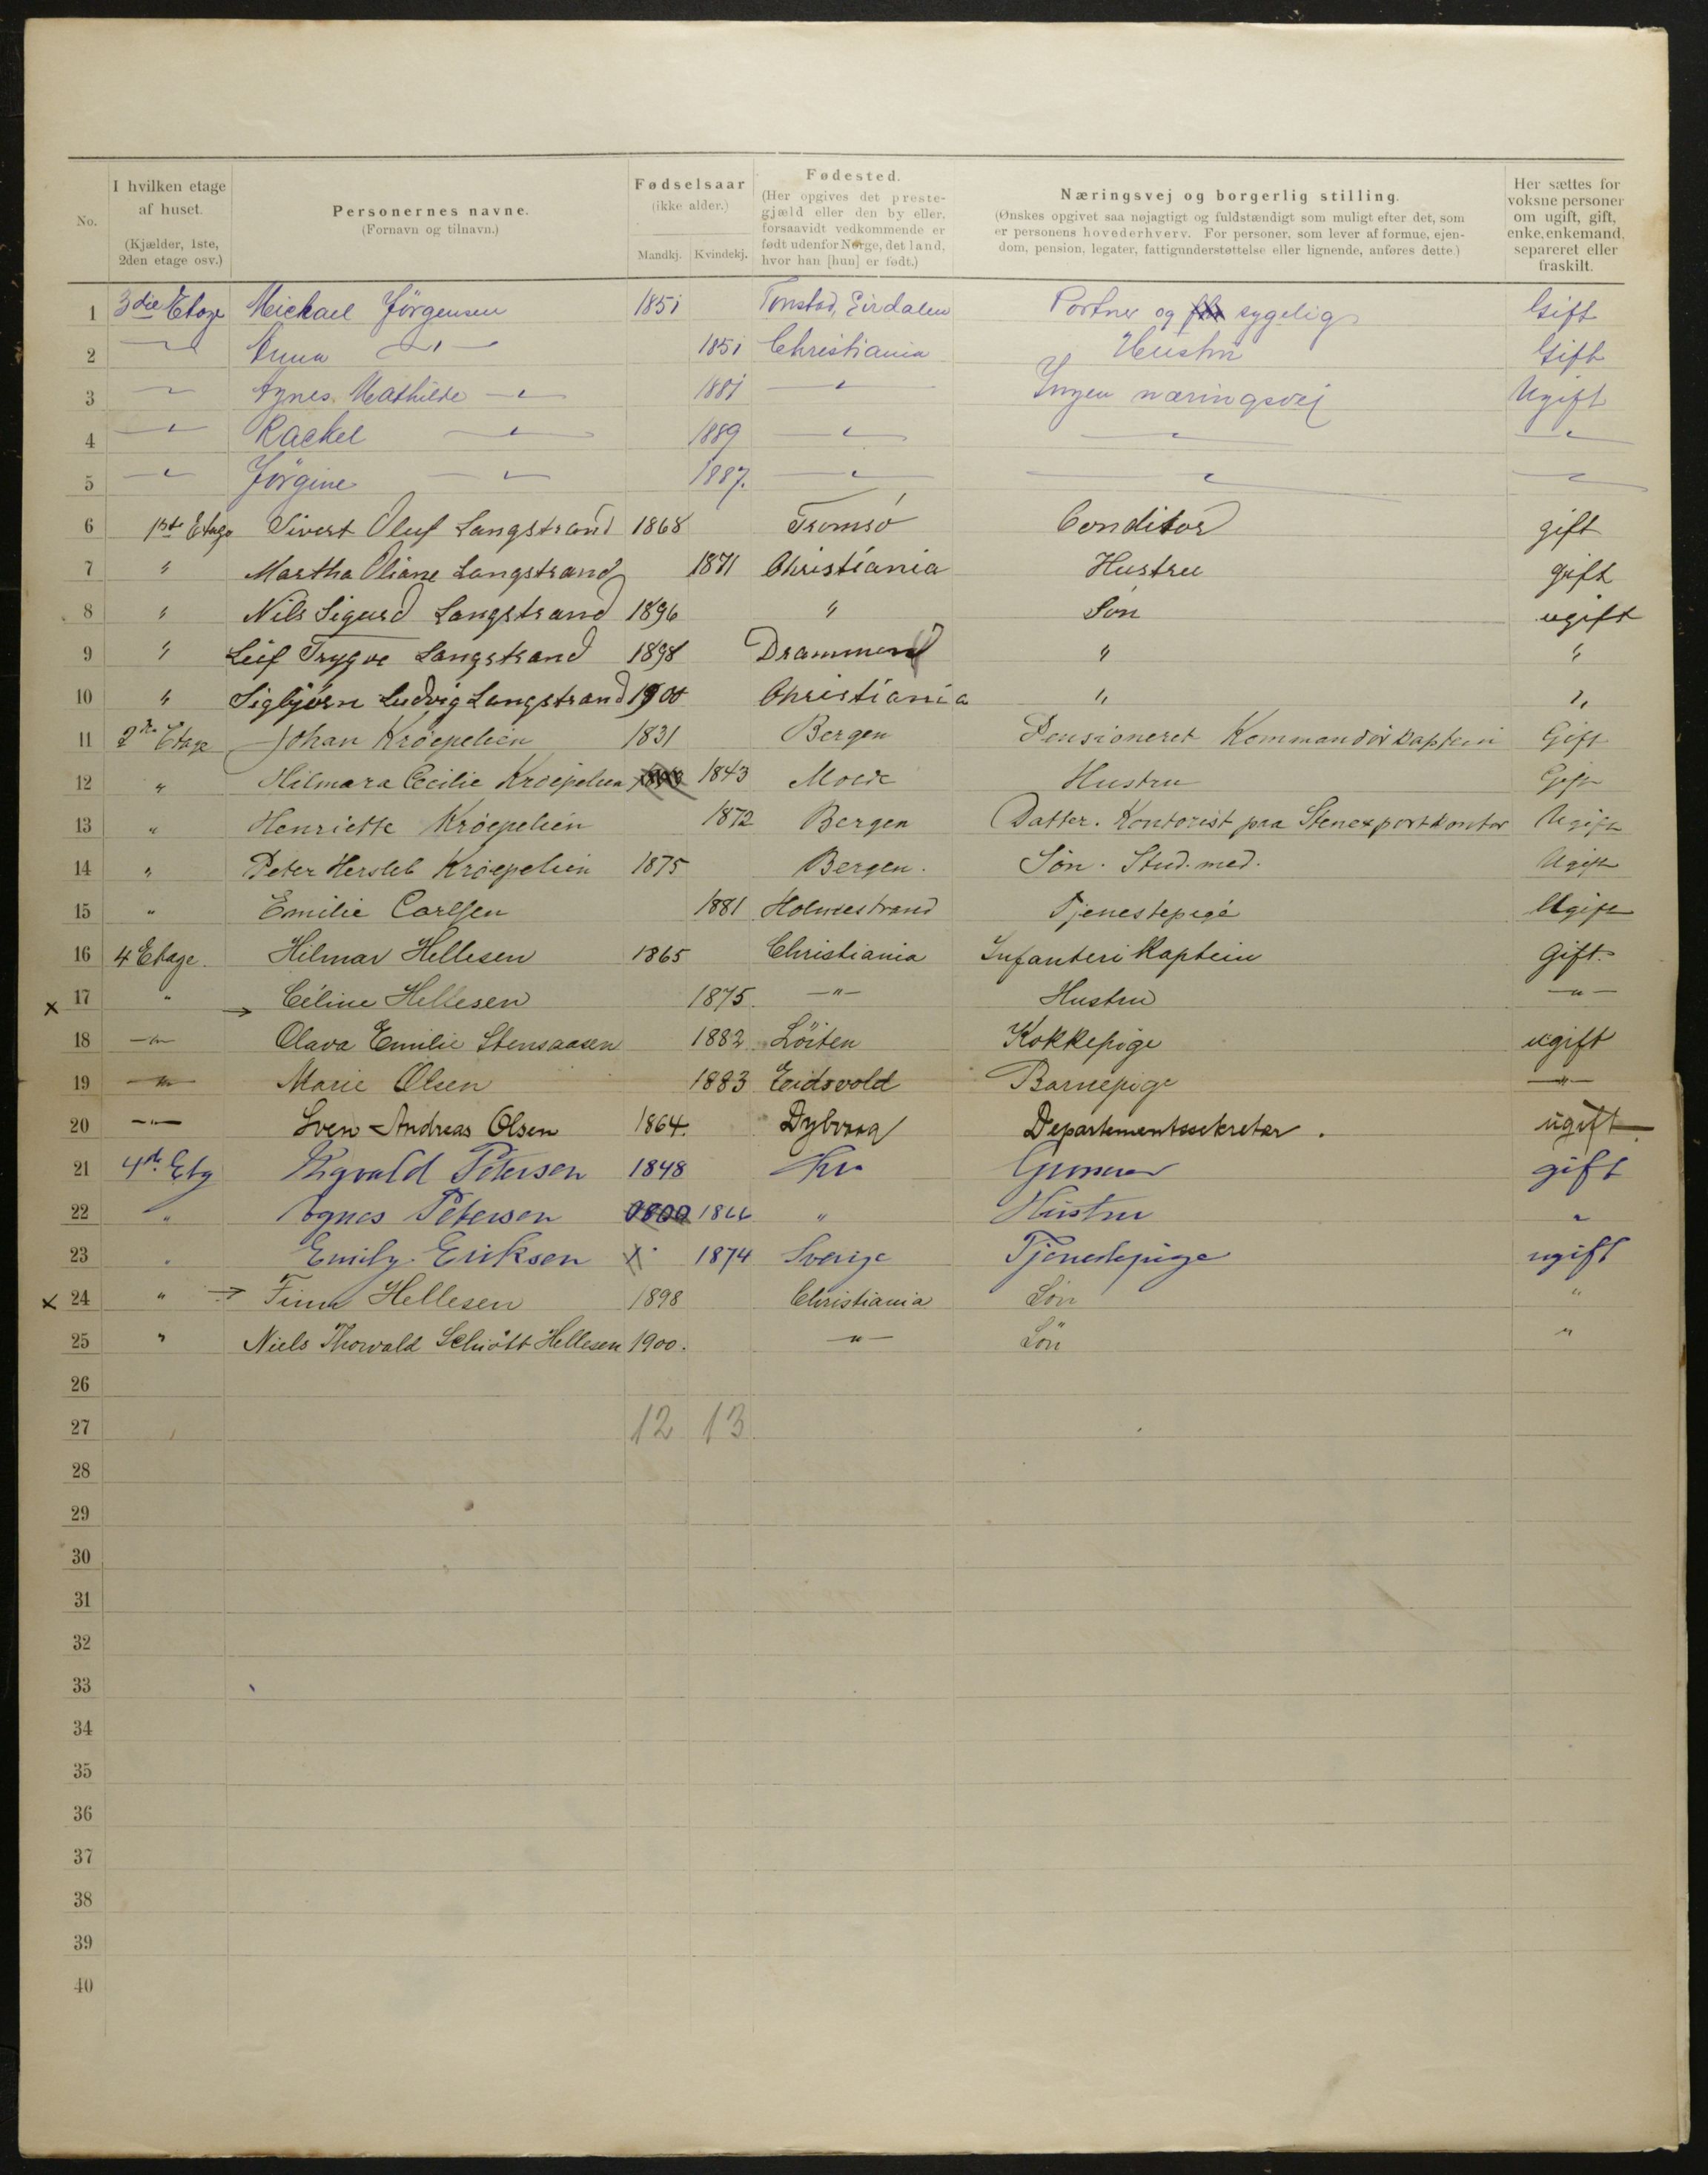 No.
I hvilken etage af huset. (Kjælder, 1ste, 2den etage osv.)
Personernes navne. (Fornavn og tilnavn.)
Fødselsaar (ikke alder.) Mandkj. Kvindekj.
Fødested. (Her opgives det prestegjæld eller den by eller, forsaavidt vedkommende er født udenfor Norge, det land, hvor han [hun] er født.)
Næringsvej og borgerlig stilling. (Ønskes opgivet saa nøjagtigt og fuldstændigt som muligt efter det, som er personens hovederhverv. For personer, som lever af formue, ejendom, pension, legater, fattigunderstøttelse eller lignende, anføres dette.)
Her sættes for voksne personer om ugift, gift, enke, enkemand, separeret eller fraskilt.
1 3die Etage Michael Jörgensen 1851 Tonstad, Sirdalen Portner og sygelig Gift
2 " Anna " 1851 Christiania Hustru Gift
3 " Agnes Mathilde " 1881 " Ingen næringsvej Ugift
4 " Rackel " 1889 " " "
5 " Jörgine " 1887. " " "
6 1ste Etage Sivert Oluf Langstrand 1868 Tromsö Conditor gift
7 " Martha Oliane Langstrand 1871 Christiania Hustru gift
8 " Nils Sigurd Langstrand 1896 " Søn ugift
9 " Leif Trygve Langstrand 1898 Drammen " "
10 " Sigbjørn Ludvig Langstrand 1900 Christiania " "
11 2den Etage Johan Krøepelien 1831 Bergen Pensioneret Kommandørkaptein Gift
12 " Hilmara Cecilie Krøepelien 1843 Molde Hustru Gift
13 " Henriette Krøepelien 1872 Bergen Datter. Kontorist paa Stenexportkontor Ugift
14 " Peter Hersleb Krøepelien 1875 Bergen. Søn. Stud. med. Ugift
15 " Emilie Carlsen 1881 Holmestrand Tjenestepige Ugift
16 4 Etage. Hilmar Hellesen 1865 Christiania Infanteri Kaptein Gift.
x 17 " → Céline Hellesen 1875. " Hustru "
18 " Olava Emilie Stensaasen 1882 Löiten Kokkepige ugift
19 " Marie Olsen 1883 Eidsvold Barnepige "
20 " Sven Andreas Olsen 1864. Dybvaag Departementssekretær. ugift
21 4de Etg Sigvald Petersen 1848 Kra gift
22 " Agnes Petersen 1866 " Hustru "
23 " Emily Eriksen 1874 Sverige Tjenestepige ugift
x 24 " → Finn Hellesen 1898 Christiania Sön "
25 " Niels Thorvald Schiött Hellesen 1900. " Sön "
26
27 12 13
28
29
30
31
32
33
34
35
36
37
38
39
40